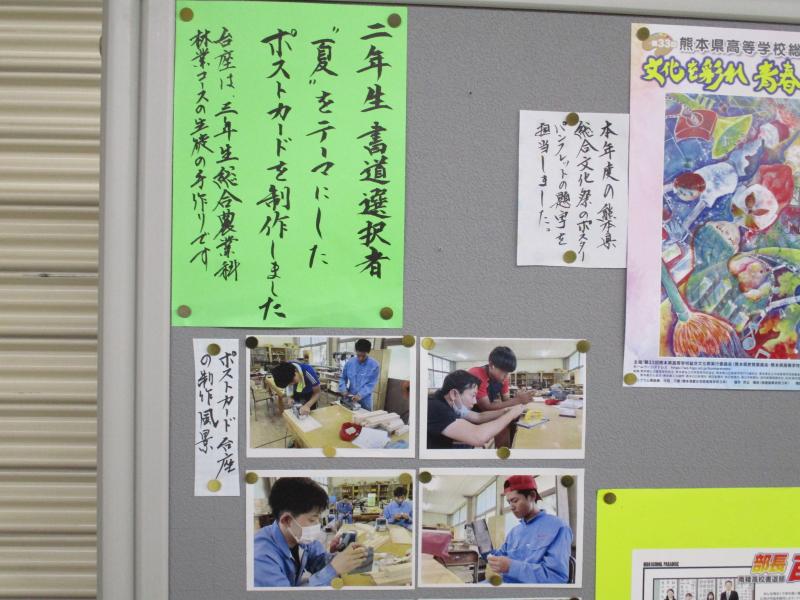 二年生書道選択者
"夏"をテーマにした
ポストカードを制作しました
台座は、三年生総合農業科
林業コースの生徒の手作りです
本年度の熊本県
総合文化祭のポスター
パンフレットの題字を
担当しました。
第33回 熊本県高等学校総
文化を彩れ 青春
ポストカード台座
の制作風景
HIGH SCHOOL PARADISE
部長
南稜高校書道部